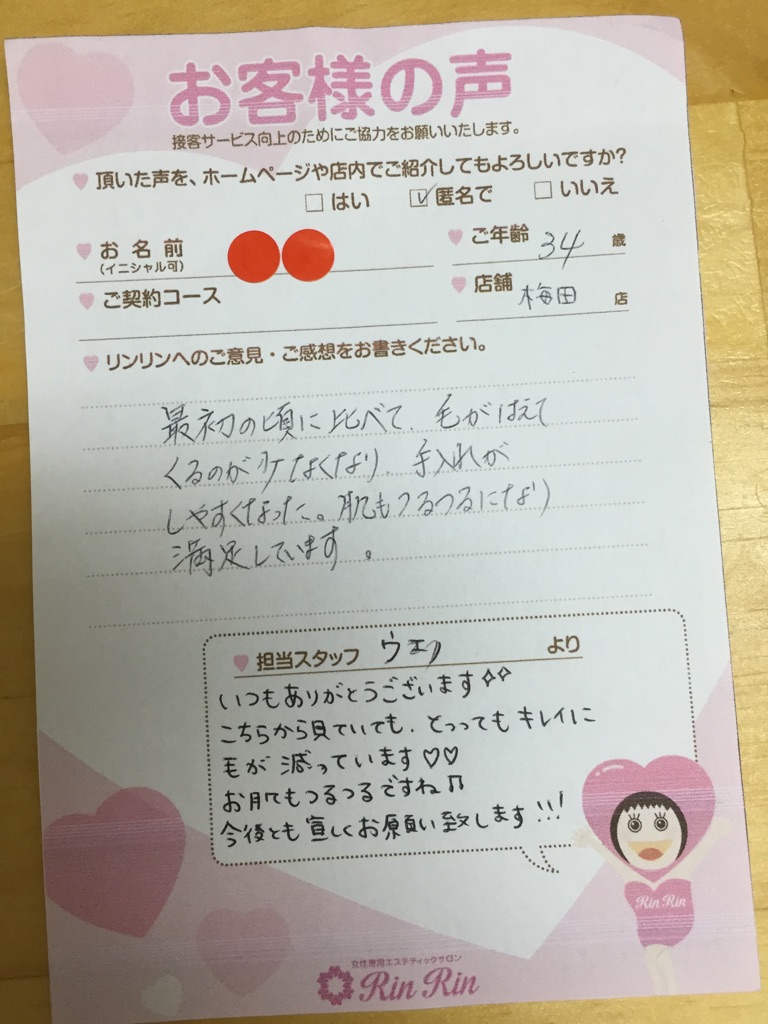 お客様の声
接客サービス向上のためにご協力をお願いいたします。
頂いた声を、ホームページや店内でご紹介してもよろしいですか?
□ はい ☑ 匿名で □ いいえ
お名前
(イニシャル可)
ご年齢 34 歳
ご契約コース
店舗 梅田 店
リンリンへのご意見・ご感想をお書きください。
最初の頃に比べて、毛がはえて
くるのが少なくなり、手入れが
しやすくなった。肌もつるつるになり
満足しています。
担当スタッフ ウエノ より
いつもありがとうございます✧✧
こちらから見ていても、とってもキレイに
毛が減っています♡♡
お肌もつるつるですね♫
今後とも宜しくお願い致します!!!
Rin Rin
女性専用エステティックサロン
Rin Rin